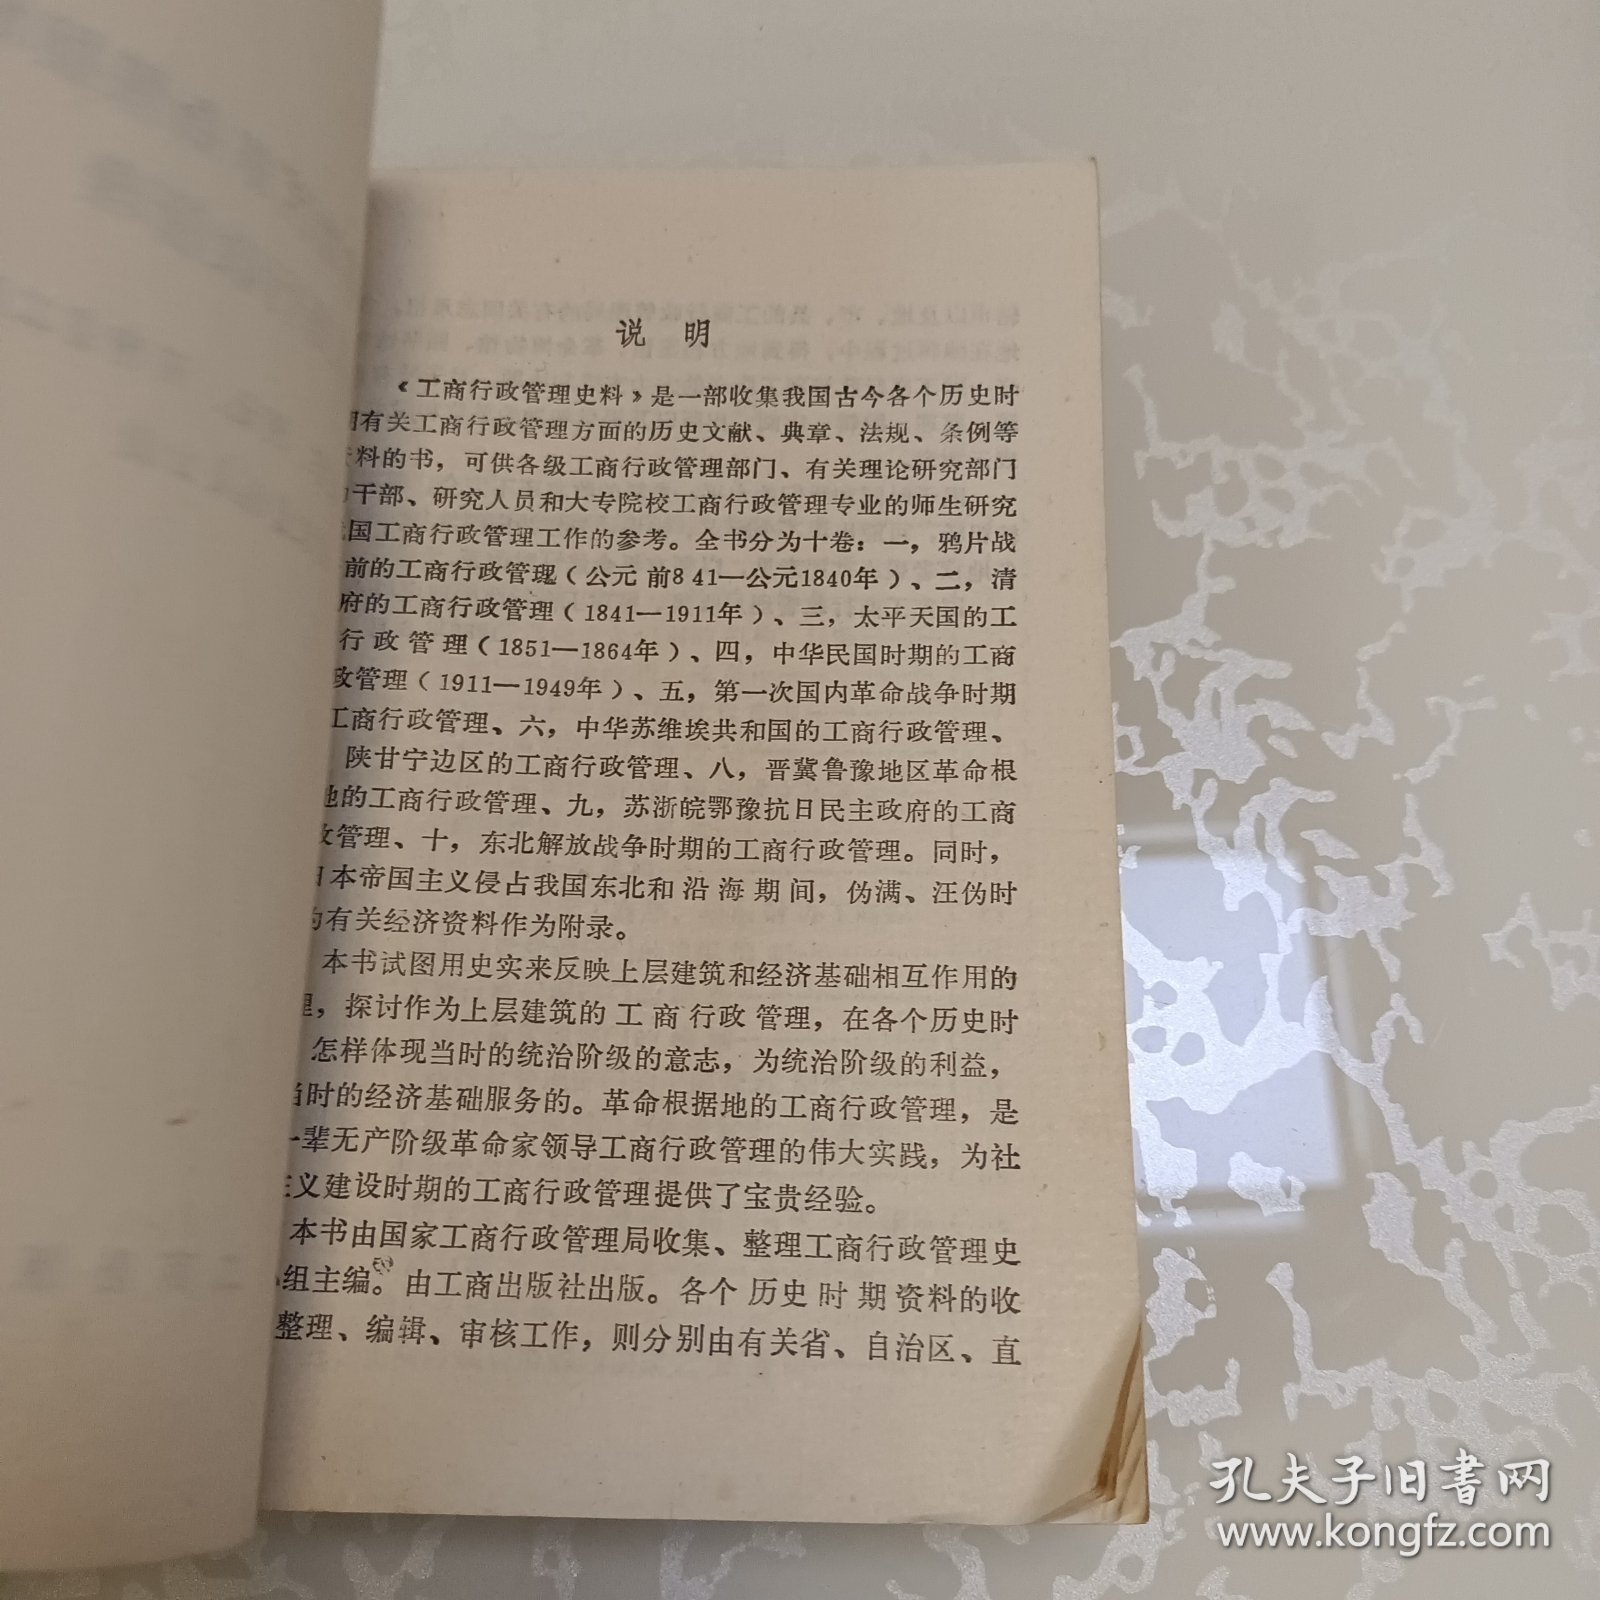 说 明
《工商行政管理史料》是一部收集我国古今各个历史时
有关工商行政管理方面的历史文献、典章、法规、条例等
料的书，可供各级工商行政管理部门、有关理论研究部门
干部、研究人员和大专院校工商行政管理专业的师生研究
国工商行政管理工作的参考。全书分为十卷：一，鸦片战
前的工商行政管理（公元前841—公元1840年）、二，清
府的工商行政管理（1841—1911年）、三，太平天国的工
行政管理（1851—1864年）、四，中华民国时期的工商
政管理（1911—1949年）、五，第一次国内革命战争时期
工商行政管理、六，中华苏维埃共和国的工商行政管理、
陕甘宁边区的工商行政管理、八，晋冀鲁豫地区革命根
地的工商行政管理、九，苏浙皖鄂豫抗日民主政府的工商
政管理、十，东北解放战争时期的工商行政管理。同时，
日本帝国主义侵占我国东北和沿海期间，伪满、汪伪时
的有关经济资料作为附录。
本书试图用史实来反映上层建筑和经济基础相互作用的
理，探讨作为上层建筑的工商行政管理，在各个历史时
怎样体现当时的统治阶级的意志，为统治阶级的利益，
当时的经济基础服务的。革命根据地的工商行政管理，是
一辈无产阶级革命家领导工商行政管理的伟大实践，为社
主义建设时期的工商行政管理提供了宝贵经验。
本书由国家工商行政管理局收集、整理工商行政管理史
组主编。由工商出版社出版。各个历史时期资料的收
整理、编辑、审核工作，则分别由有关省、自治区、直
孔夫子旧书网
www.kongfz.com